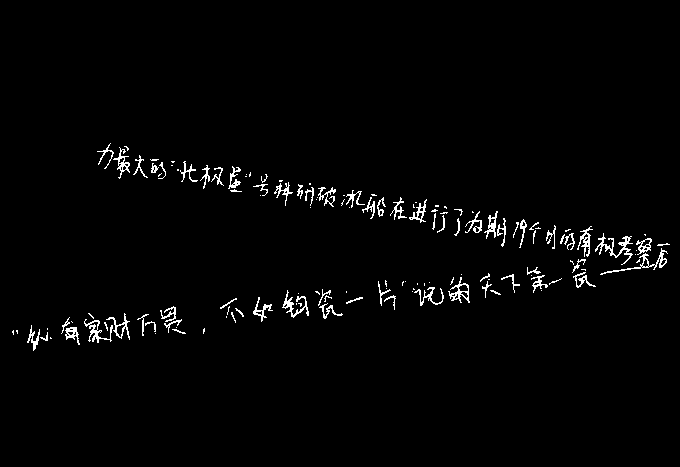 力最大的“北极星”号科研破冰船在进行了为期19个月的南极考察后
“纵有家财万贯，不如钧瓷一片”说的天下第一瓷——